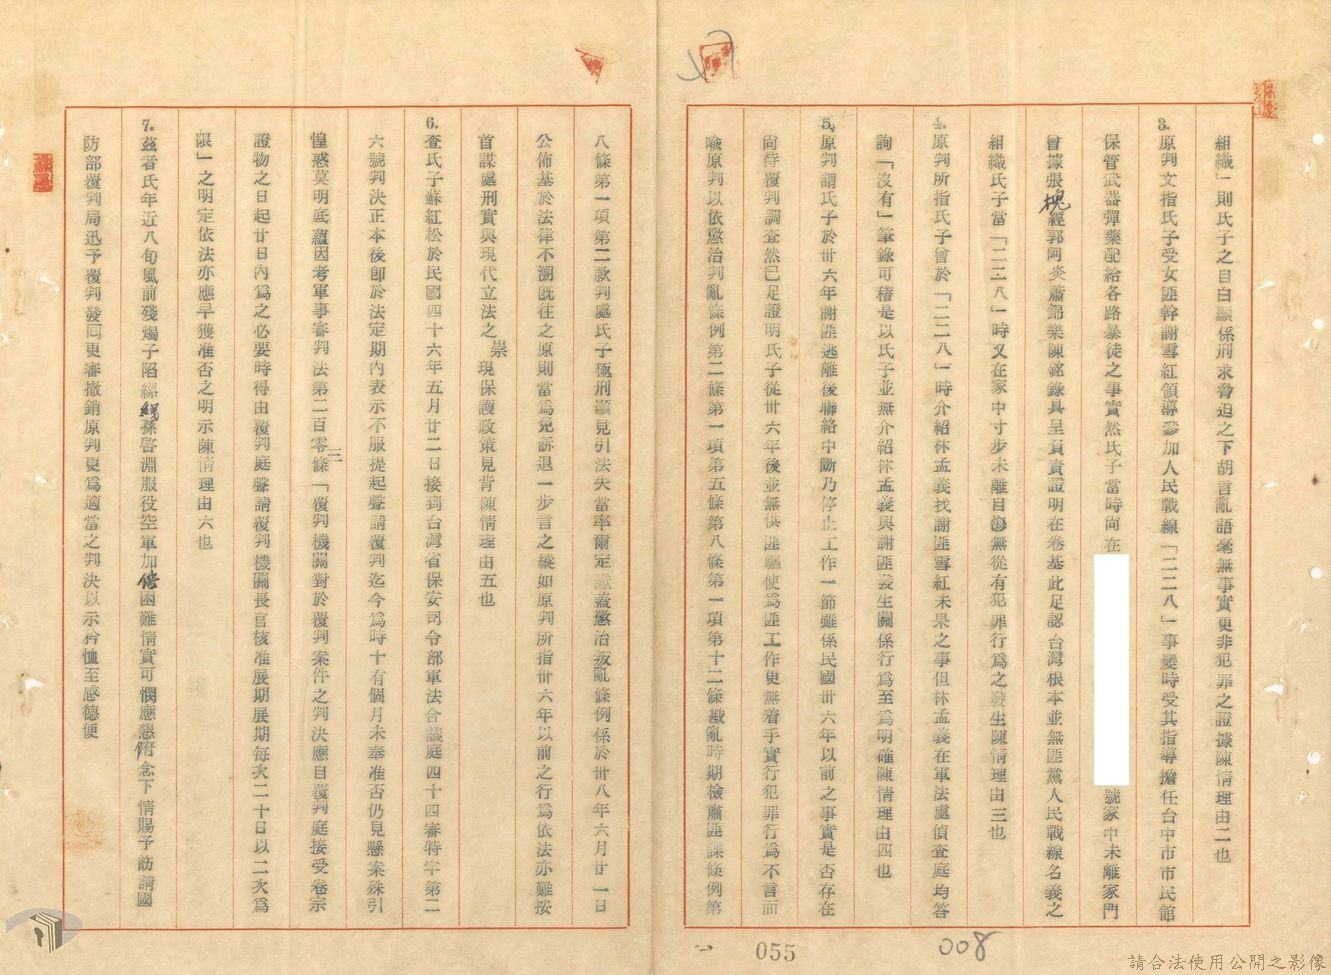 組織」則氏子之自白顯係刑求脅迫之下胡言亂語毫無事實更非犯罪之證據陳情理由二也
3. 原判文指氏子受女匪幹謝雪紅領導參加人民戰線「二二八」事變時受其指導擔任台中市市民館
保管武器彈藥配給各路暴徒之事實然氏子當時尚在
號家中未離家門
曾據張槐經郭阿炎蕭錦樂陳銘錄具呈負責證明在卷基此足認台灣根本並無匪黨人民戰線名義之
組織氏子當「二二八」時又在家中寸步未離自無從有犯罪行為之發生陳情理由三也
4. 原判所指氏子曾於「二二八」時介紹林孟義找謝匪雪紅未果之事但林孟義在軍法處偵查庭均答
詢「沒有」筆錄可稽是以氏子並無介紹林孟義與謝匪發生關係行為至為明確陳情理由四也
5. 原判謂氏子於卅六年謝匪逃離後聯絡中斷乃停止工作一節雖係民國卅六年以前之事實是否存在
尚待覆判調查然已足證明氏子從卅六年後並無供匪驅使為匪工作更無着手實行犯罪行為不言而
喻原判以依懲治叛亂條例第二條第一項第五條第八條第一項第十二條戡亂時期檢肅匪諜條例第
八條第一項第二款判處氏子極刑顯見引法失當率爾定讞蓋懲治叛亂條例係於卅八年六月廿一日
公佈基於法律不溯既往之原則當為免訴退一步言之縱如原判所指卅六年以前之行為依法亦難按
首謀處刑實與現代立法之崇現保護政策見背陳情理由五也
6. 查氏子蘇紅松於民國四十六年五月廿二日接到台灣省保安司令部軍法合議庭四十四審特字第二
六號判決正本後即於法定期內表示不服提起聲請覆判迄今為時十有個月未奉准否仍見懸案殊引
惶惑莫明底蘊因考軍事審判法第二百零三條「覆判機關對於覆判案件之判決應自覆判庭接受卷宗
證物之日起廿日內為之必要時得由覆判庭聲請覆判機關長官核准展期展期每次二十日以二次為
限」之明定依法亦應早獲准否之明示陳情理由六也
7. 茲者氏年近八旬風前殘燭子陷縲絏孫啓淵服役空軍加倍困難情實可憫應懇俯念下情賜予飭請國
防部覆判局迅予覆判發回更審撤銷原判更為適當之判決以示矜恤至感德便
055
008
請合法使用公開之影像